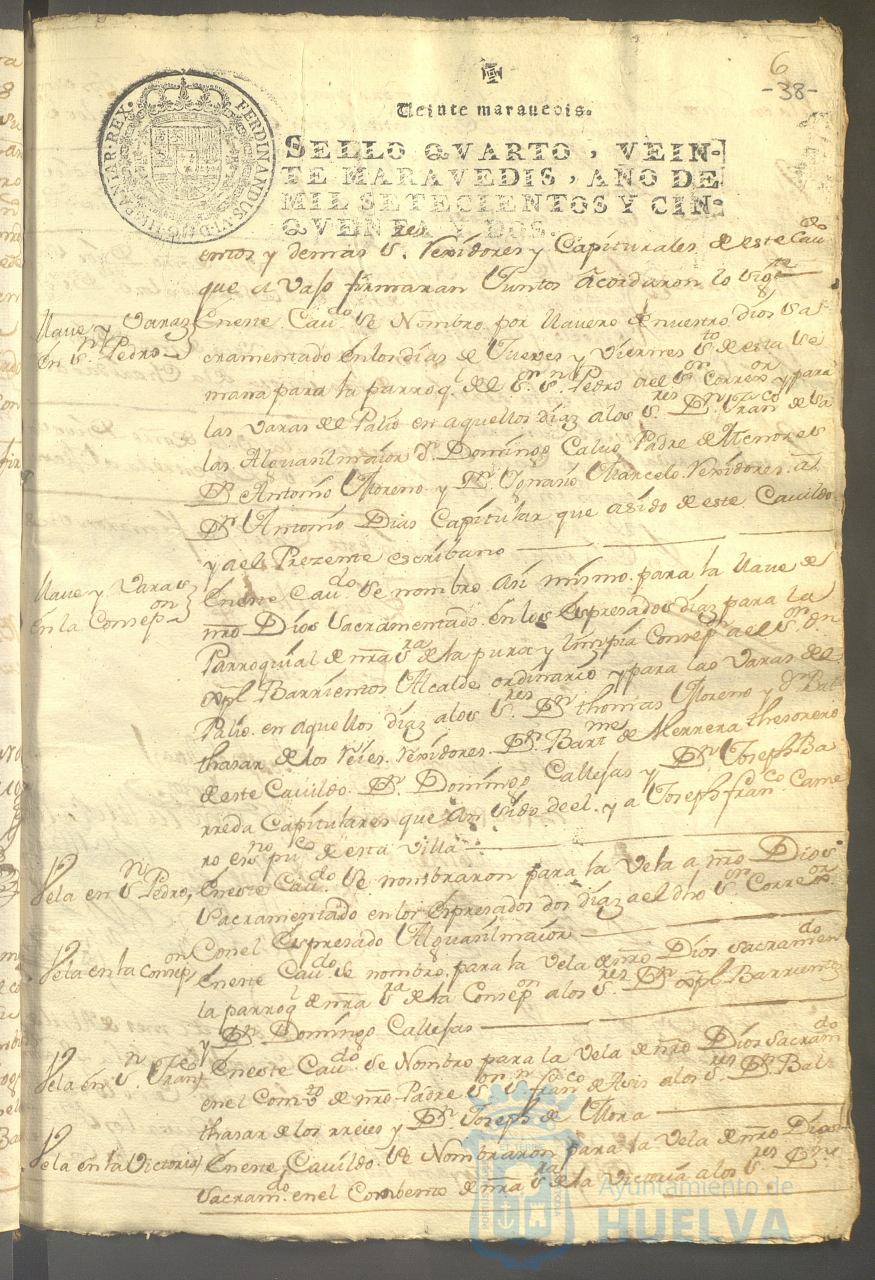 6
-38-
Veinte maravedis.
SELLO QVARTO, VEIN-
TE MARAVEDIS, AÑO DE
MIL SETECIENTOS Y CIN-
QVENTA Y DOS.
FERDINANDUS VI D G HISPANIAR REX
entos y demas Sres. Rexidores y Capitulares de este Cavdo
que avajo firmaran Juntos Acordaron lo sigte
Llave y Varas
en Sn. Pedro
En este Cavdo. Se Nombro por Llavero de nuestro Dios Sa-
cramentado en los dias de Jueves y Viernes Sto de esta Se
mana para la parroql. de Sor. Sn Pedro a el Sor Correxor y para
las Varas de Palio en aquellos diaz a los Sres Dn. Franco de Sa
las Alguasilmaior Dn. Domingo Calvo Padre de Menores
Dn. Antonio Moreno y Dn. Ygnasio Marcelo Rexidores al
Dn. Antonio Dias Capitular que a sido de este Cavildo
y a el Prezente escribano
Llave y Varas
en la Consepon
En este Cavdo Se nombro asi mismo para la Llave de
nro Dios Sacramentado en los Espresados diaz para la
Parroquial de nra Sra de la pura y limpia Consepn a el Sor. Dn
Xpl Barrientos Alcalde ordinario y para las Varas de
Palio en aquellos diaz a los Sres Dn thomas Moreno y Dn Bal
thasar de los Reies Rexidores Dn. Barme de Herrera thesorero
de este Cavildo Dn. Domingo Callejas y Dn. Joseph Ba
rreda Capitulares que an sido de el y a Joseph Franco Came
ro esno puco de esta Villa
Vela en Sn Pedro
En este Cavdo Se nombraron para la Vela a nro Dios
Sacramentado en los Espresados dos diaz a el dho Sor Correor
Con el Espresado Alguasilmaior
Vela en la Consepon
En este Cavdo se nombro para la Vela de nro Dios Sacramendo
la parroql de nra Sra de la Consepon a los Sres Dn Xpl Barrientoz
y Dn Domingo Callejas
Vela en Sn Franco
En este Cavdo Se Nombro para la Vela de nro Dios Sacramdo
en el Comto de nro Padre Sor Sn Franco de Asis a los Sres Dn Bal
thasar de los rreies y Dn Joseph de Mora
Vela en la Victoria
En este Cavildo Se Nombraron para la Vela de nro Dios
Sacramdo. en el Combento de nra Sra de la Victoria a los Sres Dn
Ayuntamiento de
HUELVA